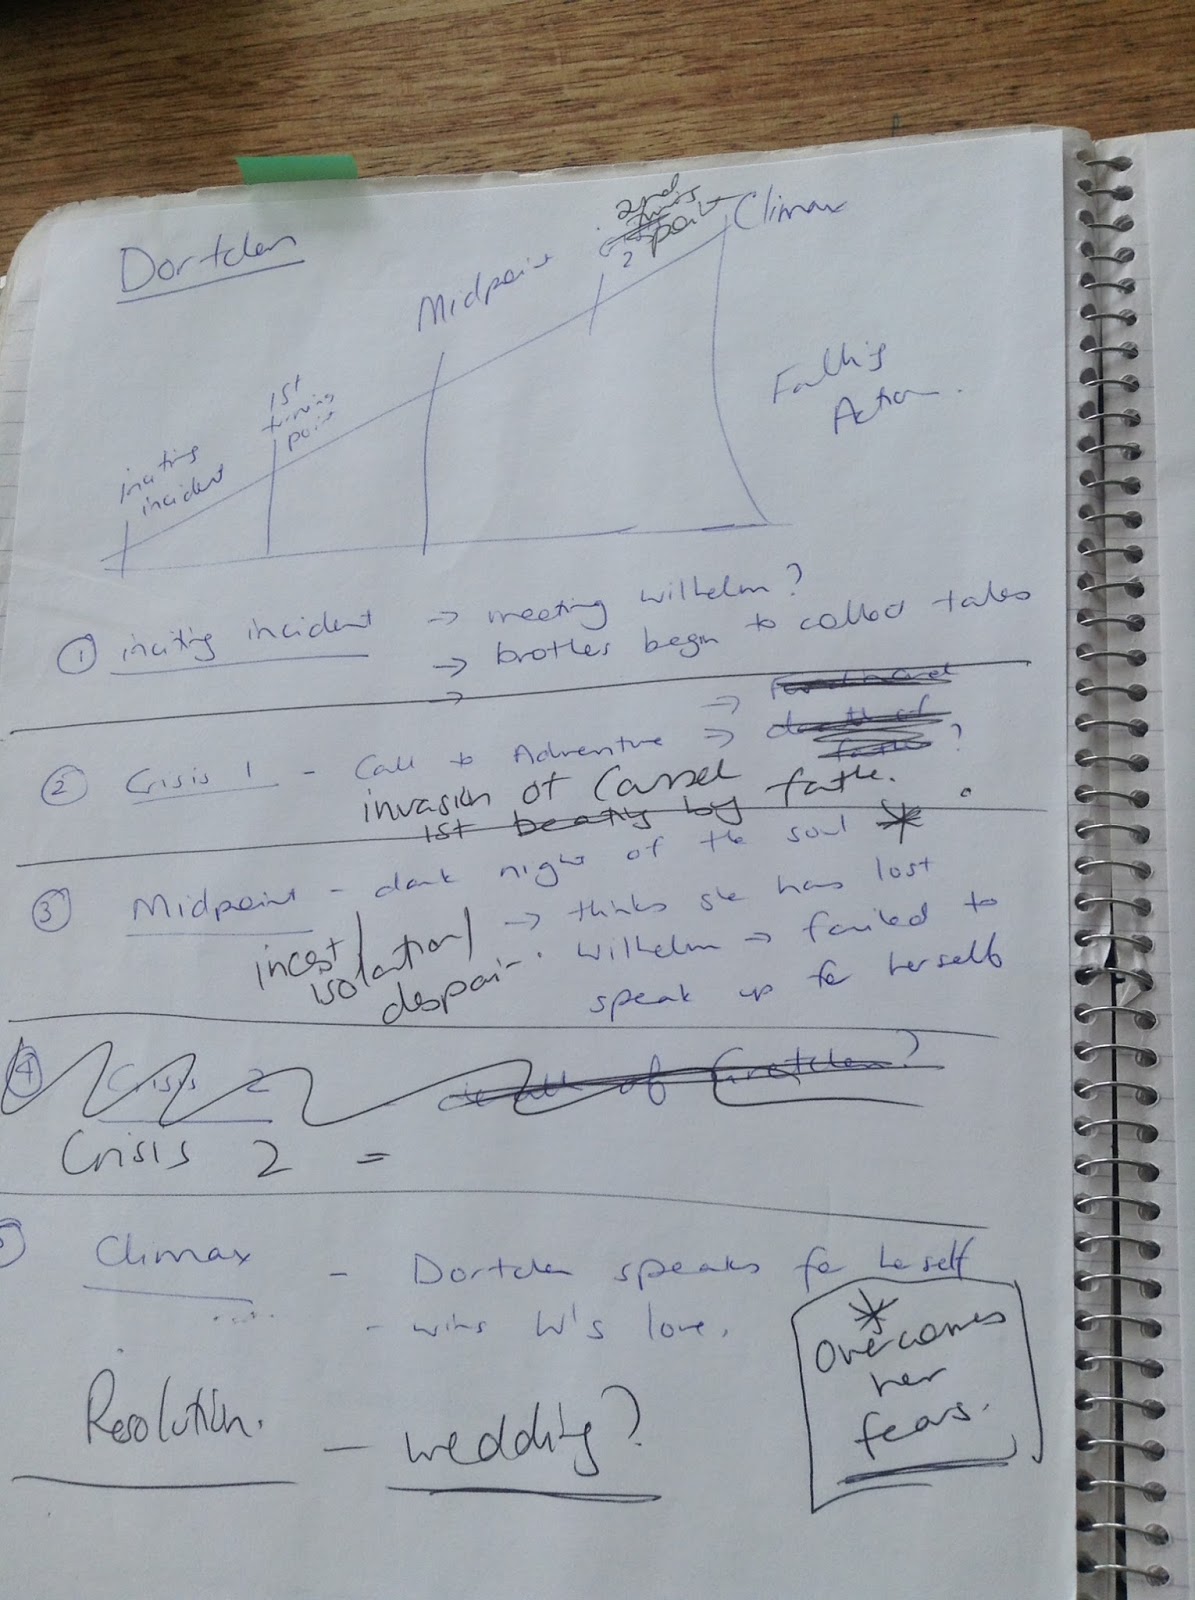 Dortchen
inciting
incident
1st
turning
point
Midpoint
2nd
turning
point
?
Climax
Falling
Action.
① inciting incident → meeting Wilhelm?
→ brothers begin to collect tales
→
→ Ferdinand
② Crisis 1 - Call to Adventure → death of
father?
invasion of Cassel
1st beating by father.
③ Midpoint - dark night of the soul *
→ thinks she has lost
Wilhelm → failed to
speak up for herself
incest/
isolation/
despair.
④ Crisis 2 death of Gretchen?
Crisis 2 =
Climax - Dortchen speaks for herself
- wins W's love.
*
Overcomes
her
fears.
Resolution. - wedding?